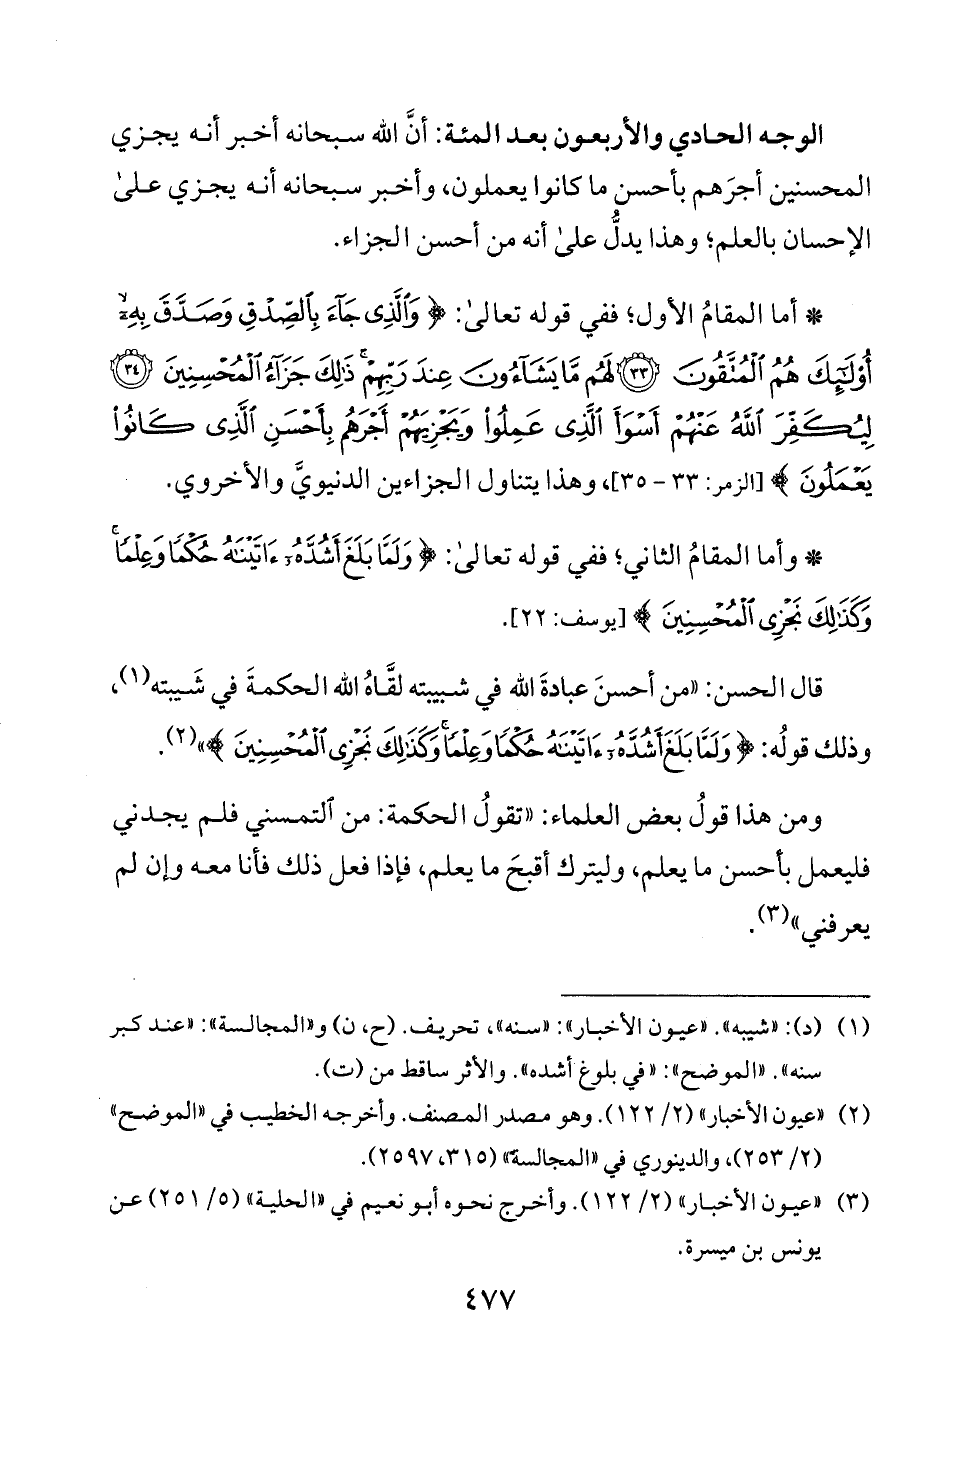 الوجه الحادي والأربعون بعد المئة: أنَّ الله سبحانه أخبر أنه يجزي
المحسنين أجرَهم بأحسن ما كانوا يعملون، وأخبر سبحانه أنه يجزي علىٰ
الإحسان بالعلم؛ وهذا يدلُّ علىٰ أنه من أحسن الجزاء.
* أما المقامُ الأول؛ ففي قوله تعالىٰ: ﴿ وَٱلَّذِى جَآءَ بِٱلصِّدْقِ وَصَدَّقَ بِهِۦٓ ۙ
أُو۟لَٰٓئِكَ هُمُ ٱلْمُتَّقُونَ ٣٣ لَهُم مَّا يَشَآءُونَ عِندَ رَبِّهِمْ ۚ ذَٰلِكَ جَزَآءُ ٱلْمُحْسِنِينَ ٣٤
لِيُكَفِّرَ ٱللَّهُ عَنْهُمْ أَسْوَأَ ٱلَّذِى عَمِلُوا۟ وَيَجْزِيَهُمْ أَجْرَهُم بِأَحْسَنِ ٱلَّذِى كَانُوا۟
يَعْمَلُونَ ﴾ [الزمر: ٣٣ - ٣٥]، وهذا يتناول الجزاءين الدنيويَّ والأخروي.
* وأما المقامُ الثاني؛ ففي قوله تعالىٰ: ﴿ وَلَمَّا بَلَغَ أَشُدَّهُۥٓ ءَاتَيْنَٰهُ حُكْمًا وَعِلْمًا ۚ
وَكَذَٰلِكَ نَجْزِى ٱلْمُحْسِنِينَ ﴾ [يوسف: ٢٢].
قال الحسن: «من أحسنَ عبادةَ الله في شبيبته لقَّاهُ الله الحكمةَ في شَيبته(١)،
وذلك قولُه: ﴿ وَلَمَّا بَلَغَ أَشُدَّهُۥٓ ءَاتَيْنَٰهُ حُكْمًا وَعِلْمًا ۚ وَكَذَٰلِكَ نَجْزِى ٱلْمُحْسِنِينَ ﴾»(٢).
ومن هذا قولُ بعض العلماء: «تقولُ الحكمة: من ٱلتمسني فلم يجدني
فليعمل بأحسن ما يعلم، وليترك أقبحَ ما يعلم، فإذا فعل ذلك فأنا معه وإن لم
يعرفني»(٣).
(١) (د): «شيبه». «عيون الأخبار»: «سنه»، تحريف. (ح، ن) و«المجالسة»: «عند كبر
سنه». «الموضح»: «في بلوغ أشده». والأثر ساقط من (ت).
(٢) «عيون الأخبار» (٢/ ١٢٢). وهو مصدر المصنف. وأخرجه الخطيب في «الموضح»
(٢/ ٢٥٣)، والدينوري في «المجالسة» (٣١٥، ٢٥٩٧).
(٣) «عيون الأخبار» (٢/ ١٢٢). وأخرج نحوه أبو نعيم في «الحلية» (٥/ ٢٥١) عن
يونس بن ميسرة.
٤٧٧